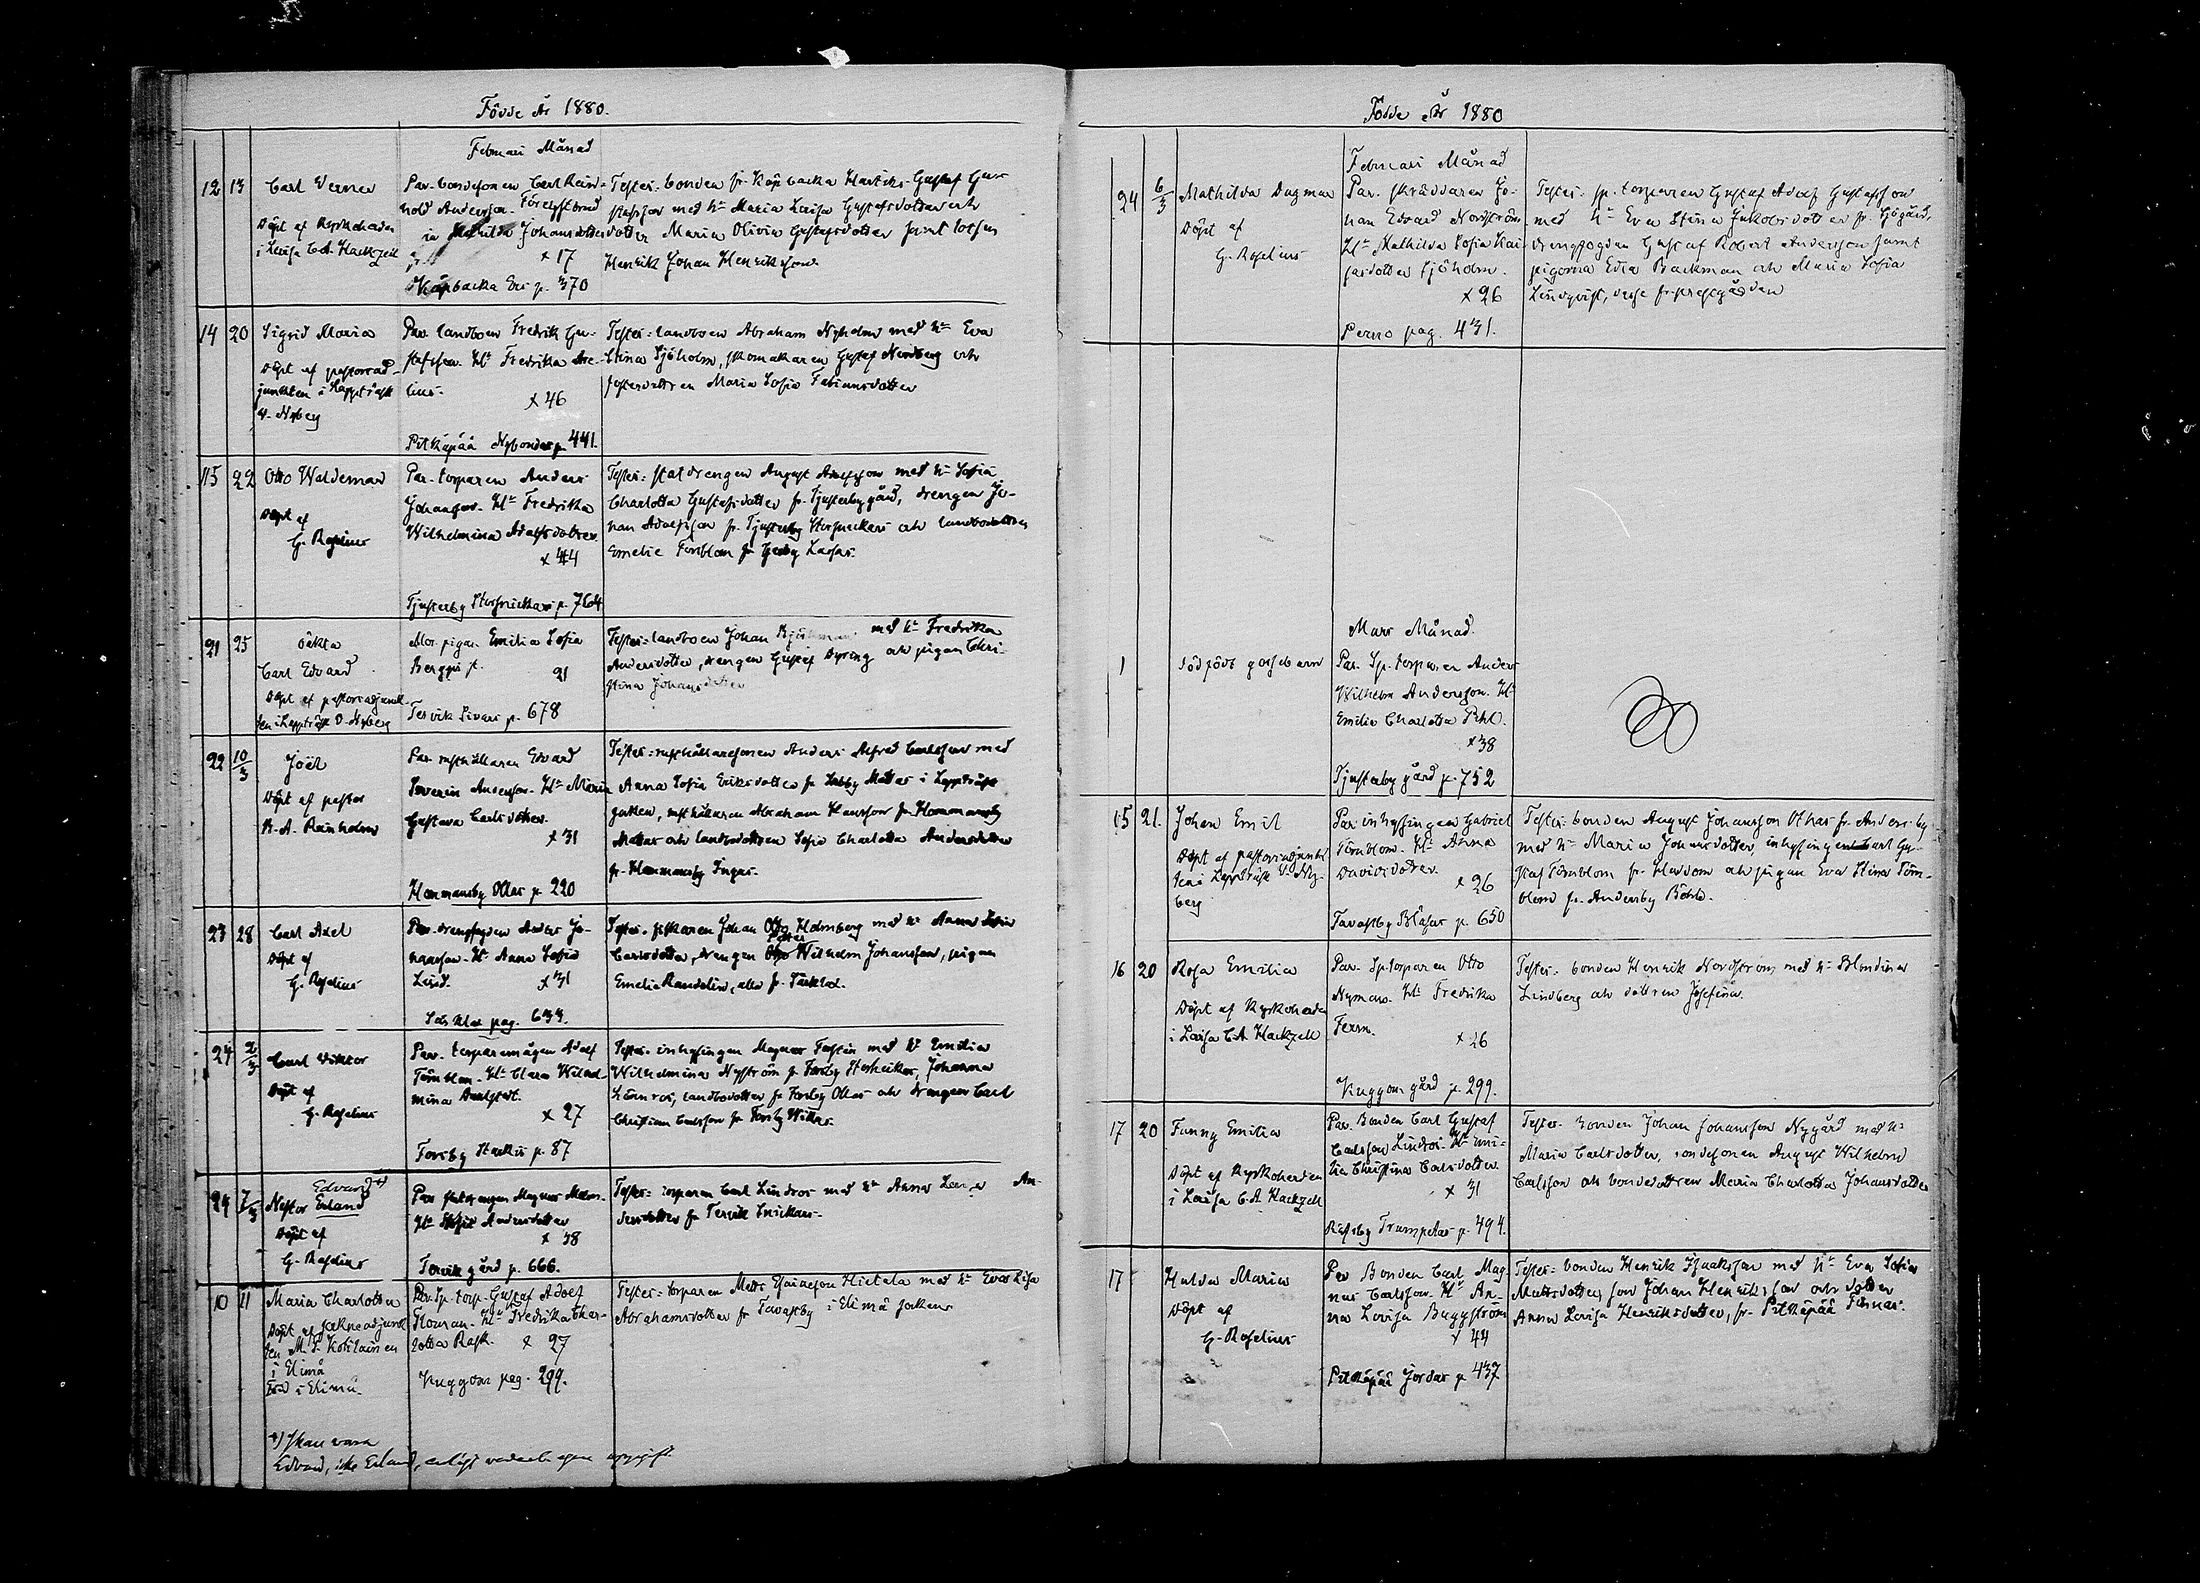 Födde År 1880.
Februari Månad
12 13 Carl Verner
Döpt af Kyrkoherden
i Lovisa C. A. Hackzell
Par. bondesonen Carl Rein-
hold Andersson. Föreg. brud
Mathilda Johansdotter
x 17
Köpbacka Eri p. 370
Testes: bonden fr. Köpbacka Hartiks Gustaf Gu-
stafsson med h. Maria Lovisa Gustafsdotter och
dotter Maria Olivia Gustafsdotter samt lotsen
Henrik Johan Henriksson
14 20 Sigrid Maria
Döpt af pastorsad-
junkten i Lappträsk
V. Nyberg
Par. landboen Fredrik Gu-
stafsson. H. Fredrika
x 46
Pitkäpää Nybondas p. 441.
Testes: landboen Abraham Nyholm med h. Eva
Stina Sjöholm, skomakaren Gustaf Nordberg och
Maria Sofia Fabiansdotter
15 22 Otto Waldemar
Döpt af
G. Roselius
Par. torparen Anders
Johansson. H. Fredrika
Wilhelmina Adolfsdotter
x 44
Tjusterby Storsnickars p. 764
Testes: statdrengen August Adolfsson med h. Sofia
Charlotta Gustafsdotter fr. Tjusterby gård, drengen Jo-
han Adolfsson fr. Tjusterby Storsnickars och landbodottren
Emelie Törnblom fr. Lassas.
21 25 oäkta
Carl Edvard
Döpt af pastorsadjunk-
ten i Lappträsk V. Nyberg
Mor. pigan Emilia Sofia
Berggren
21
Tervik Sivars p. 678
Testes: landboen Johan med h. Fredrika
Andersdotter, drengen Gustaf Dyring och pigan Chri-
stina Johansdotter
22 10/3 Joël
Döpt af pastor
K. A. Reinholm
Par. rusthållaren Edvard
Severin Andersson. H. Maria
Gustava Carlsdotter
x 31
Hommansby Ollas p. 220
Testes: rusthållaresonen Anders Alfred Carlsson med
Anna Sofia Eriksdotter fr. Labby Mattas i Lappträsk
socken, rusthållaren Abraham Hansson fr. Hommansby
Mattas och landbodottren Sofia Charlotta Andersdotter
fr. Hommansby Ingas.
23 28 Carl Axel
Döpt af
G. Roselius
Par. drengfogden Anders Jo-
hansson. H. Anna Sofia
Lind.
x 31
Särklax pag. 633.
Testes. fiskaren Johan Otto Holmberg med h. Anna Sofia
Carlsdotter, drengen Otto Wilhelm Johansson, pigan
Emelie Randelin, alla fr. Särklax.
24 2/3 Carl Viktor
Döpt af
G. Roselius
Par. torparemågen Adolf
Törnblom. H. Clara Wilhel-
mina
x 27
Forsby Starkis p. 87
Testes. inhysingen Magnus Fastin med h. Emilia
Wilhelmina Nyström fr. Forsby, Johanna
Lönnros, landbodotter fr. Forsby Ollas och drengen Carl
Christian Carlsson fr. Forsby Wittas.
24 7/3 Edvard +)
Nestor Erland
Döpt af
G. Roselius
Par. statdrengen Magnus Malm.
H. Sofia Andersdotter
x 38
Tervik gård p. 666.
Testes: torparen Carl Lindros med h. Anna Lovisa An-
dersdotter fr. Tervik Snickars.
10 11 Maria Charlotta
Döpt af sockneadjunk-
ten M. F. Kotilainen
i Elimä
Född i Elimä.
Par. Sp. torp. Gustaf Adolf
Floman. H. Fredrika Char-
lotta Rask. x 27
Kuggom pag. 299.
Testes: torparen Matts Esaiasson Hietala med h. Eva Lisa
Abrahamsdotter fr. Tavastby i Elimä socken
+) Skall vara
Edvard, icke Erland, enligt vederbörgens uppgift.
Födde År 1880
Februari Månad
24 6/3 Mathilda Dagmar
Döpt af
G. Roselius
Par. skräddaren Jo-
han Edvard Nordström
H. Mathilda Sofia Kai-
sasdotter Sjöholm.
x 26
Perno pag. 431.
Testes: sp. torparen Gustaf Adolf Gustafsson
med h. Eva Stina Jakobsdotter fr. Sjögård,
drengfogden Gustaf Robert Andersson samt
pigorna Edla Backman och Maria Sofia
Lindqvist, desse fr. prestgården
Mars Månad.
1 Dödfödt gossebarn
Par. Sp. torparen Anders
Wilhelm Andersson. H.
Emilia Charlotta Pihl.
x 38
Tjusterby gård p. 752
15 21. Johan Emil
Döpt af pastorsadjunk-
ten i Lappträsk V. Ny-
berg
Par. inhysingen Gabriel
Törnblom. H. Anna
Davidsdotter.
x 26
Tavastby Blåfar p. 650
Testes: bonden August Johansson Othas fr. Andersby
med h. Maria Johansdotter, inhysingen Carl Gu-
staf Törnblom fr. Hardom och pigan Eva Stina Törn-
blom fr. Andersby Böhls.
16 20 Rosa Emilia
Döpt af Kyrkoherden
i Lovisa C. A. Hackzell
Par. Sp. torparen Otto
Nyman. H. Fredrika
Ferm.
x 26
Kuggom gård p. 299.
Testes: bonden Henrik Nordström med h. Blondina
Lindberg och dottren Josefina.
17 20 Fanny Emilia
Döpt af Kyrkoherden
i Lovisa C. A. Hackzell
Par. Bonden Carl Gustaf
Carlsson Lindros. H. Emi-
lia Christina Carlsdotter.
x 31
Räfsby Trumpetar p. 494.
Testes. bonden Johan Johansson Nygård med h.
Maria Carlsdotter, bondesonen August Wilhelm
Carlsson och bondedottren Maria Charlotta Johansdotter
17 Hulda Maria
Döpt af
G. Roselius
Par Bonden Carl Mag-
nus Carlsson. H. An-
na Lovisa Buggström
x 44
Pitkäpää Jordas p 437
Testes: bonden Henrik Isaaksson med h. Eva Sofia
Mattsdotter, son Johan Henriksson och dotter
Anna Lovisa Henriksdotter, fr. Pitkäpää Finnas.